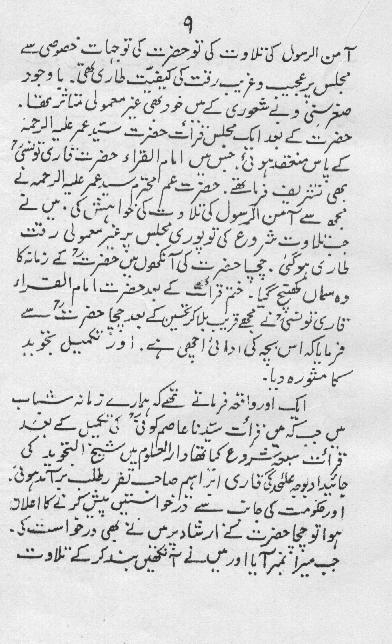 ۹
آمن الرسول کی تلاوت کی تو حضرت کی توجہات خصوصی سے
مجلس پر عجیب و غریب رقت کی کیفیت طاری تھی۔ باوجود
صغر سنی و بے شعوری کے میں خود بھی غیر معمولی متاثر تھا۔
حضرت کے بعد ایک مجلس قرأت حضرت سید عمر علیہ الرحمہ
کے پاس منعقد ہوئی جس میں امام القراء حضرت قاری تونسیؒ
بھی تشریف فرما تھے۔ حضرت عم محترم سید عمر علیہ الرحمہ نے
مجھ سے آمن الرسول کی تلاوت کی خواہش کی۔ میں نے
جب تلاوت شروع کی تو پوری مجلس پر غیر معمولی رقت
طاری ہو گئی۔ چچا حضرت کی آنکھوں میں حضرتؒ کے زمانہ کا
وہ سماں کھنچ گیا۔ ختم قرأت کے بعد حضرت امام القراء
قاری تونسیؒ نے مجھے قریب بلا کر تحسین کے بعد چچا حضرتؒ سے
فرمایا کہ اس بچہ کی ادائی اچھی ہے۔ اور تکمیل تجوید
کا مشورہ دیا۔
ایک اور واقعہ فرماتے تھے کہ ہمارے زمانہ شباب
میں جب کہ میں قرأت سیدنا عاصم کوفیؒ کی تکمیل کے بعد
قرأت سبعہ شروع کیا تھا دار العلوم میں شیخ التجوید کی
جائیداد بوجہ علٰحدگی قاری ابراہیم صاحب تقرر طلب برآمد ہوئی۔
اور حکومت کی جانب سے درخواستیں پیش کرنے کا اعلان
ہوا تو چچا حضرت کے ارشاد پر میں نے بھی درخواست کی۔
جب میرا نمبر آیا اور میں نے آنکھیں بند کر کے تلاوت